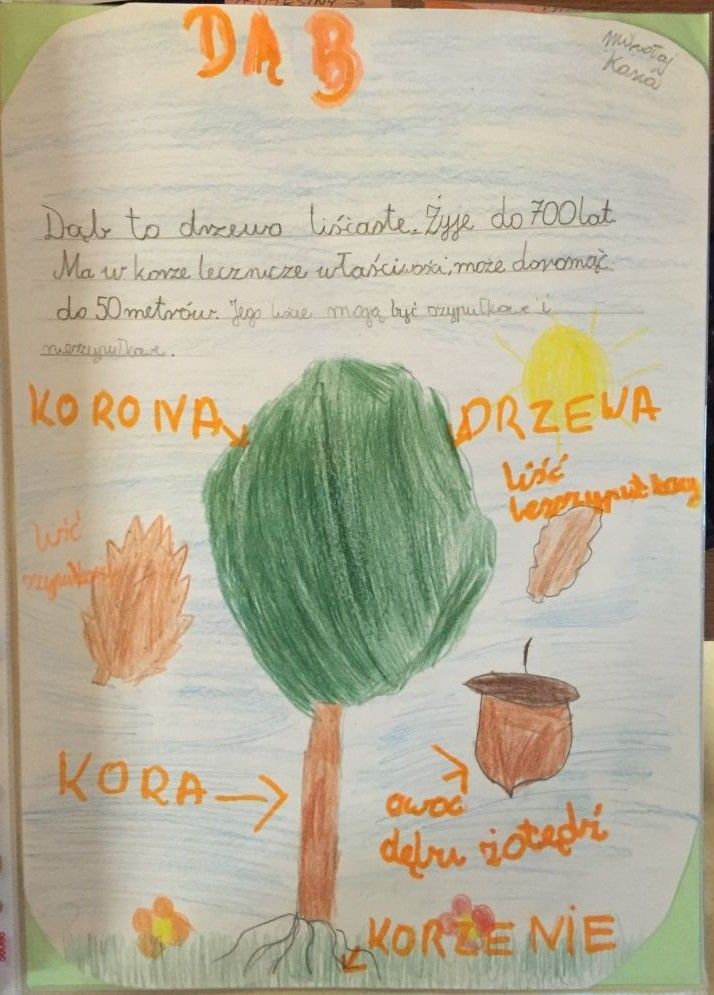 DĄB
Mikołaj
Kasia
Dąb to drzewo liściaste. Żyje do 700 lat.
Ma w korze lecznicze właściwości, może dorosnąć
do 50 metrów. Jego liście mogą być szypułkowe i
nieszypułkowe.
KORONA DRZEWA
liść
szypułkowy
liść
beszypułkowy
KORA
owoc
dębu żołędzi
KORZENIE